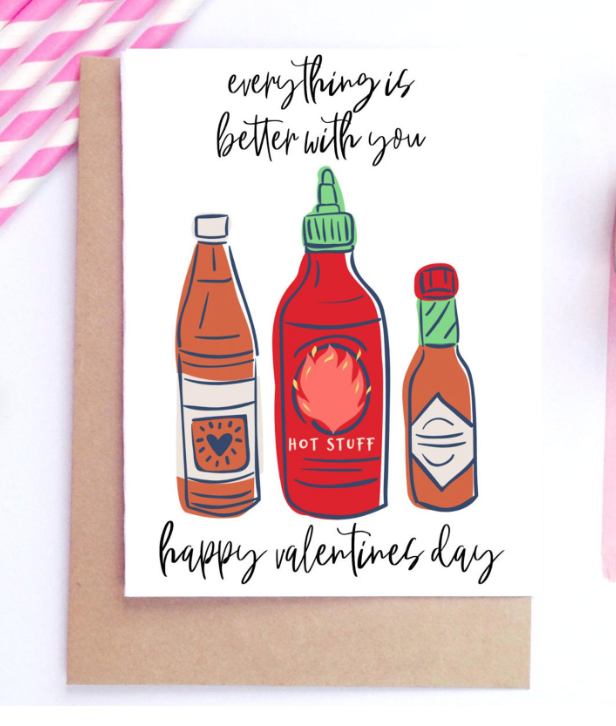 everything is
better with you
HOT STUFF
happy valentines day